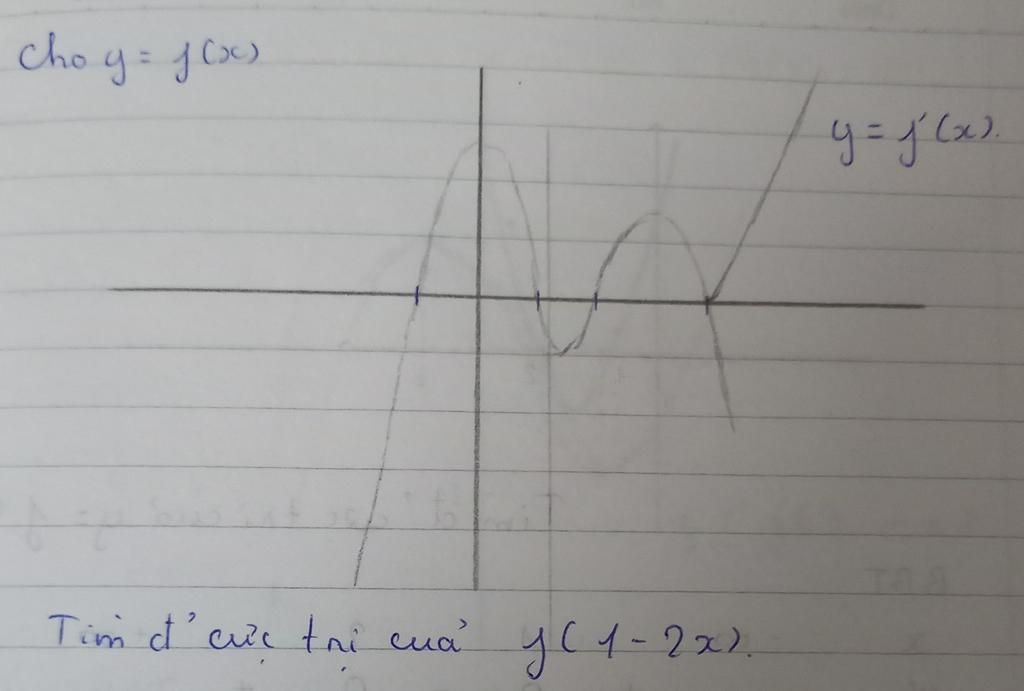 Cho y = f(x)
y = f'(x).
Tìm đ' cực trị cuả y(1-2x).